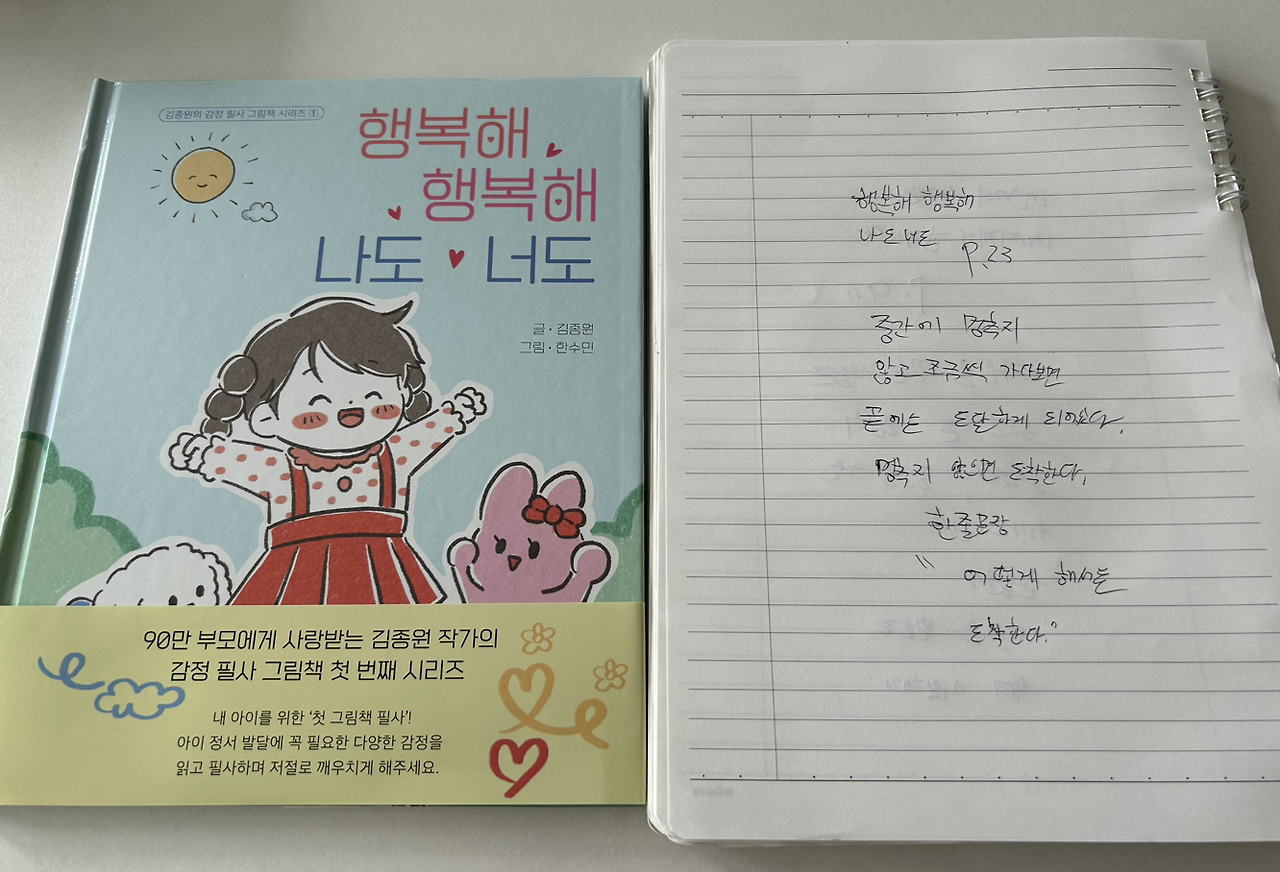 김종원의 감정 필사 그림책 시리즈 1
행복해
행복해
나도 너도
글·김종원
그림·한수민
90만 부모에게 사랑받는 김종원 작가의
감정 필사 그림책 첫 번째 시리즈
내 아이를 위한 '첫 그림책 필사'!
아이 정서 발달에 꼭 필요한 다양한 감정을
읽고 필사하며 저절로 깨우치게 해주세요.
행복해 행복해
나도 너도
P.23
중간에 멈추지
않고 조금씩 가다보면
끝에는 도달하게 되었다.
멈추지 않으면 도착한다.
한줄문장
"어떻게 해서든
도착한다."